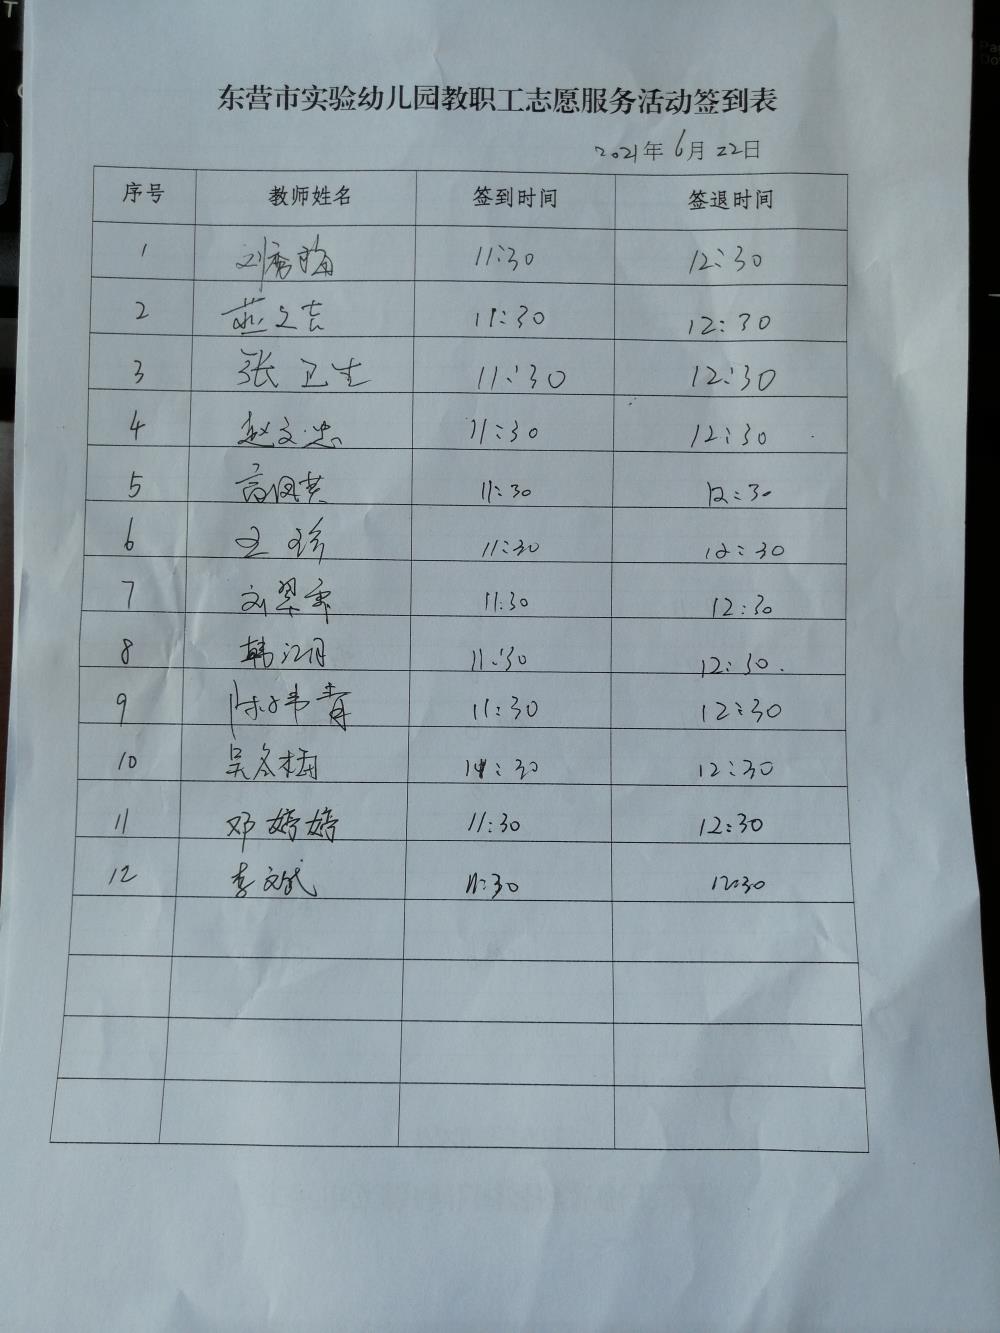 东营市实验幼儿园教职工志愿服务活动签到表
2021年6月22日
序号 教师姓名 签到时间 签退时间
1 刘秀梅 11:30 12:30
2 燕文吉 11:30 12:30
3 张卫生 11:30 12:30
4 赵文忠 11:30 12:30
5 高凤英 11:30 12:30
6 王珍 11:30 12:30
7 刘翠 11:30 12:30
8 韩江月 11:30 12:30.
9 陈青 11:30 12:30
10 吴冬梅 11:30 12:30
11 邓婷婷 11:30 12:30
12 李文武 11:30 12:30